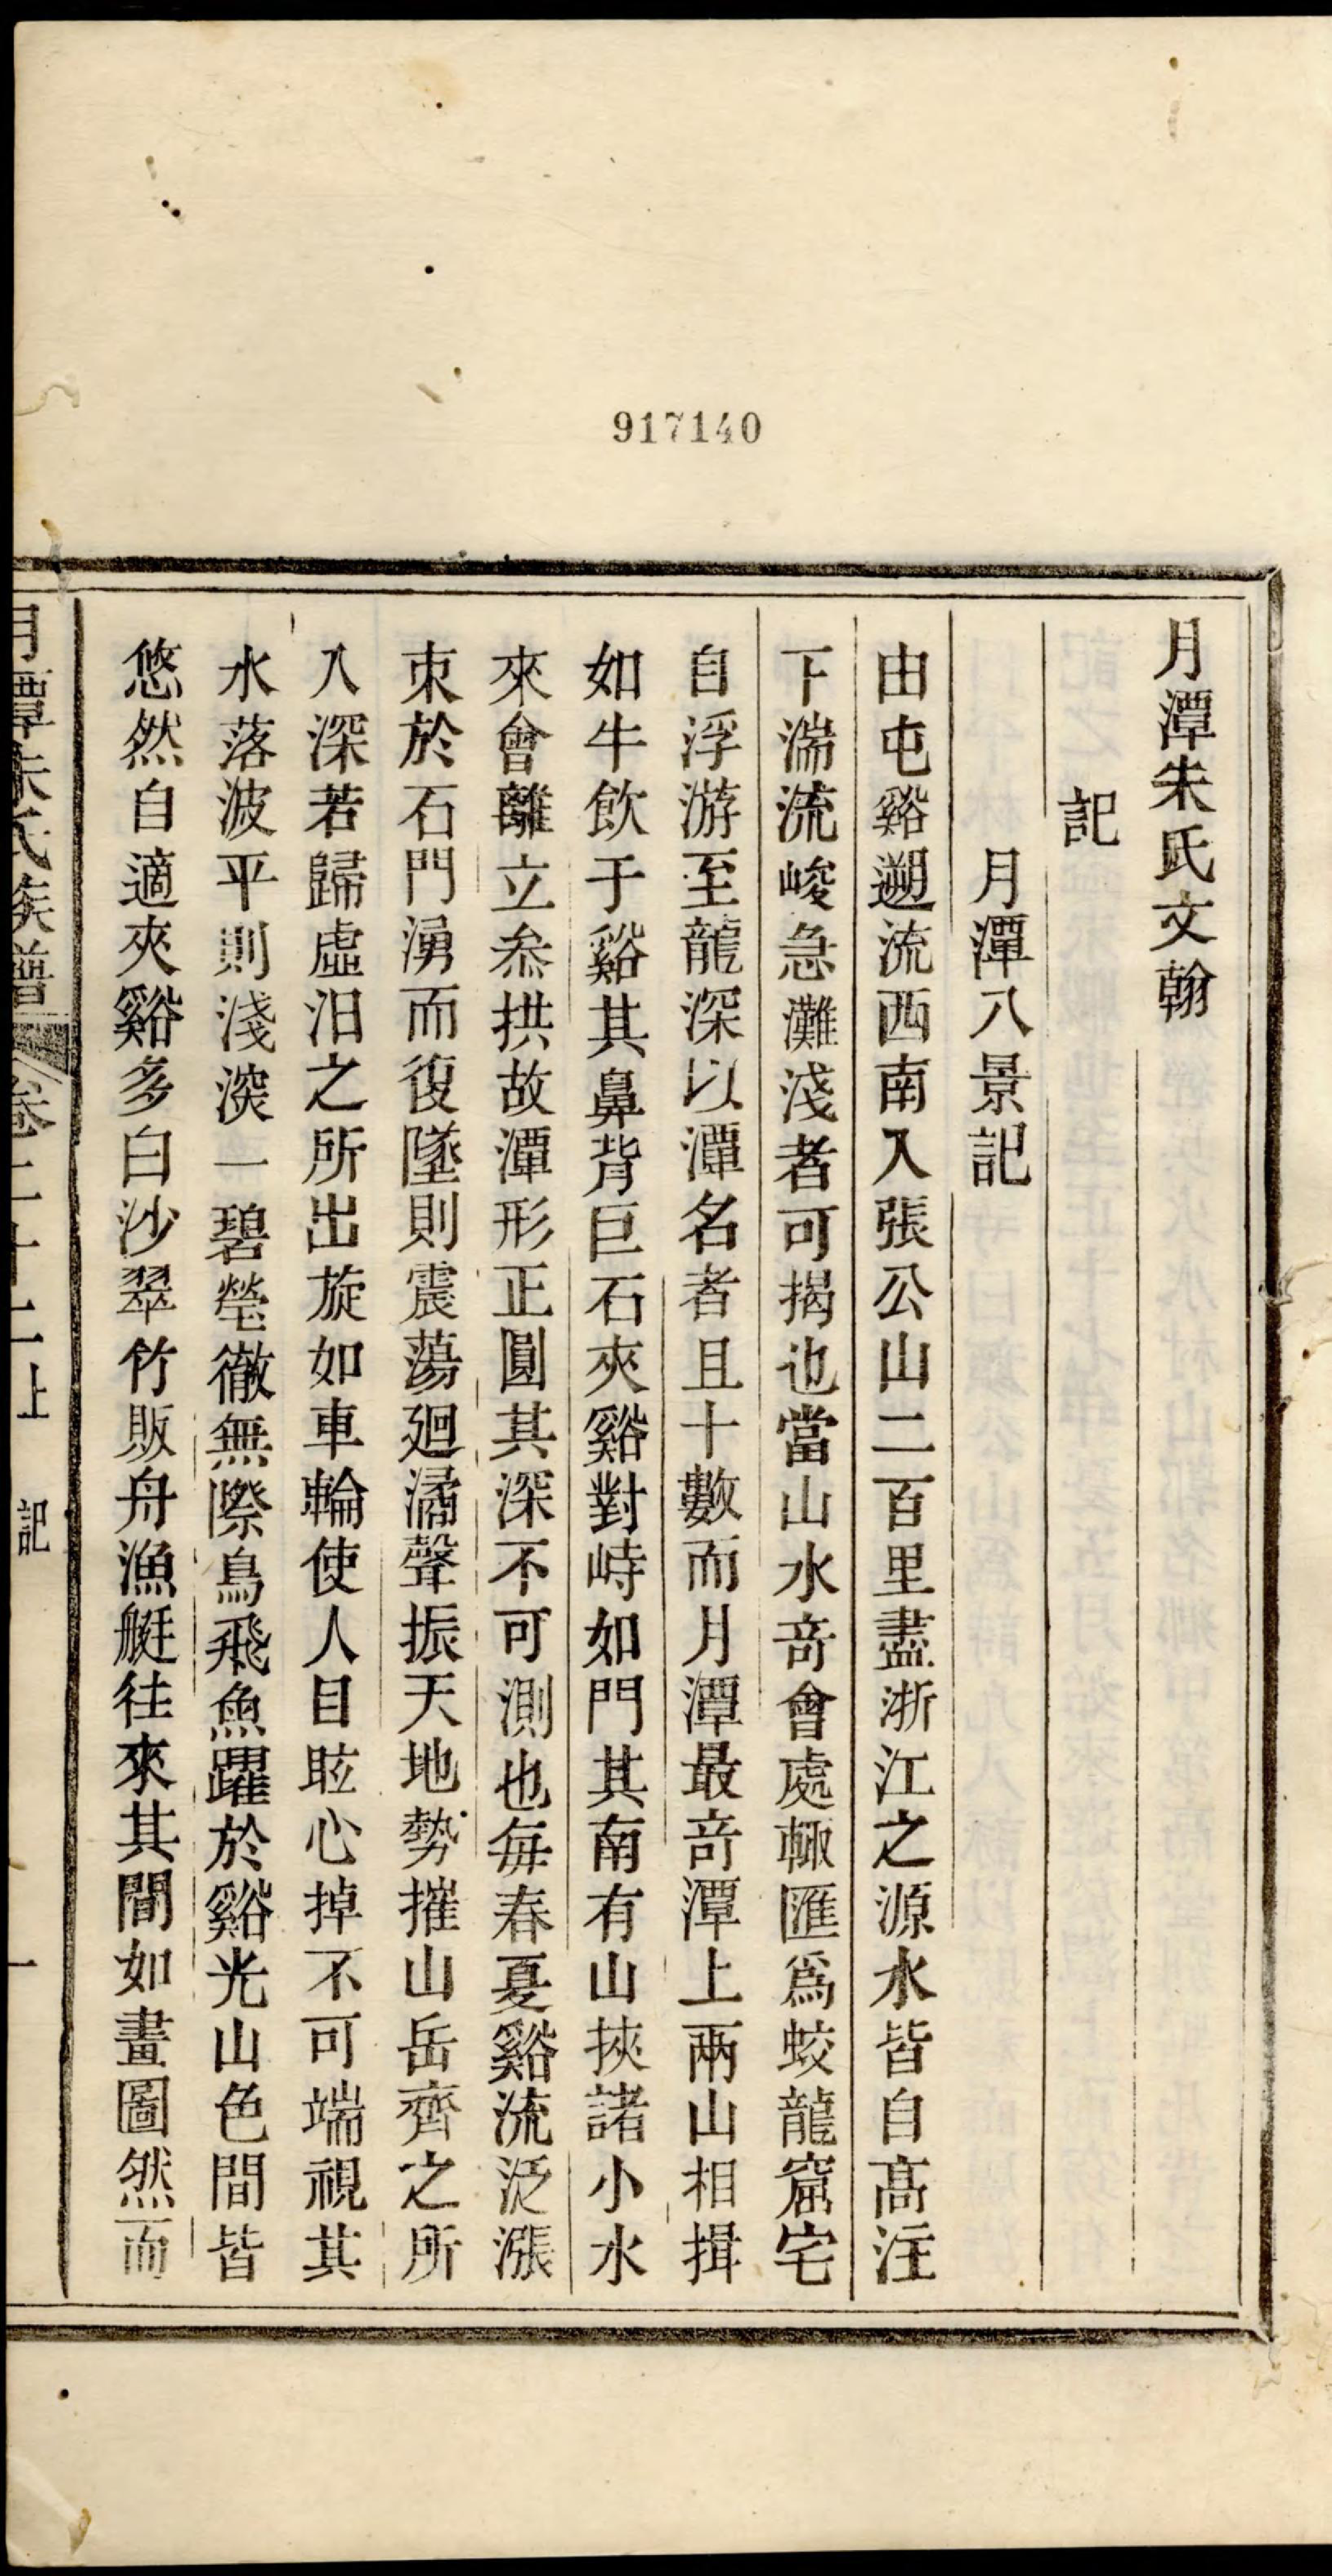 917140
月潭朱氏文翰
記
月潭八景記
由屯谿遡流西南入張公山二百里盡浙江之源水皆自高注
下湍流峻急灘淺者可揭也當山水竒會處輙匯爲蛟龍窟宅
自浮游至龍深以潭名者且十數而月潭最竒潭上兩山相揖
如牛飲于谿其鼻背巨石夾谿對峙如門其南有山挾諸小水
來會離立叅拱故潭形正圓其深不可測也每春夏谿流泛漲
束於石門湧而復墜則震蕩廻潏聲振天地勢摧山岳齊之所
入深若歸虛汩之所出旋如車輪使人目眩心掉不可端視其
水落波平則淺深一碧瑩徹無際鳥飛魚躍於谿光山色間皆
悠然自適夾谿多白沙翠竹販舟漁艇往來其間如畫圖然而
月潭朱氏族譜 卷二十二上 記 一